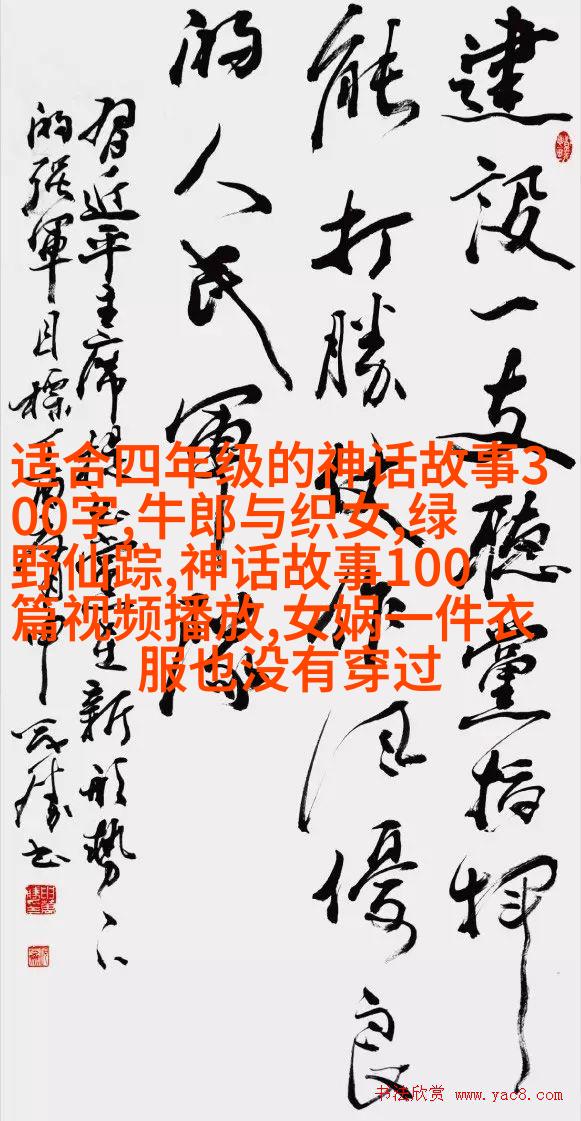 建設一支聽黨指揮
能打勝仗作風優良
的人民軍隊
習近平主席 新形勢下
的強軍目標
书
适合四年级的神话故事3
00字,牛郎与织女,绿
野仙踪,神话故事100
篇视频播放,女娲一件衣
服也没有穿过
书法欣赏 www.yac8.com